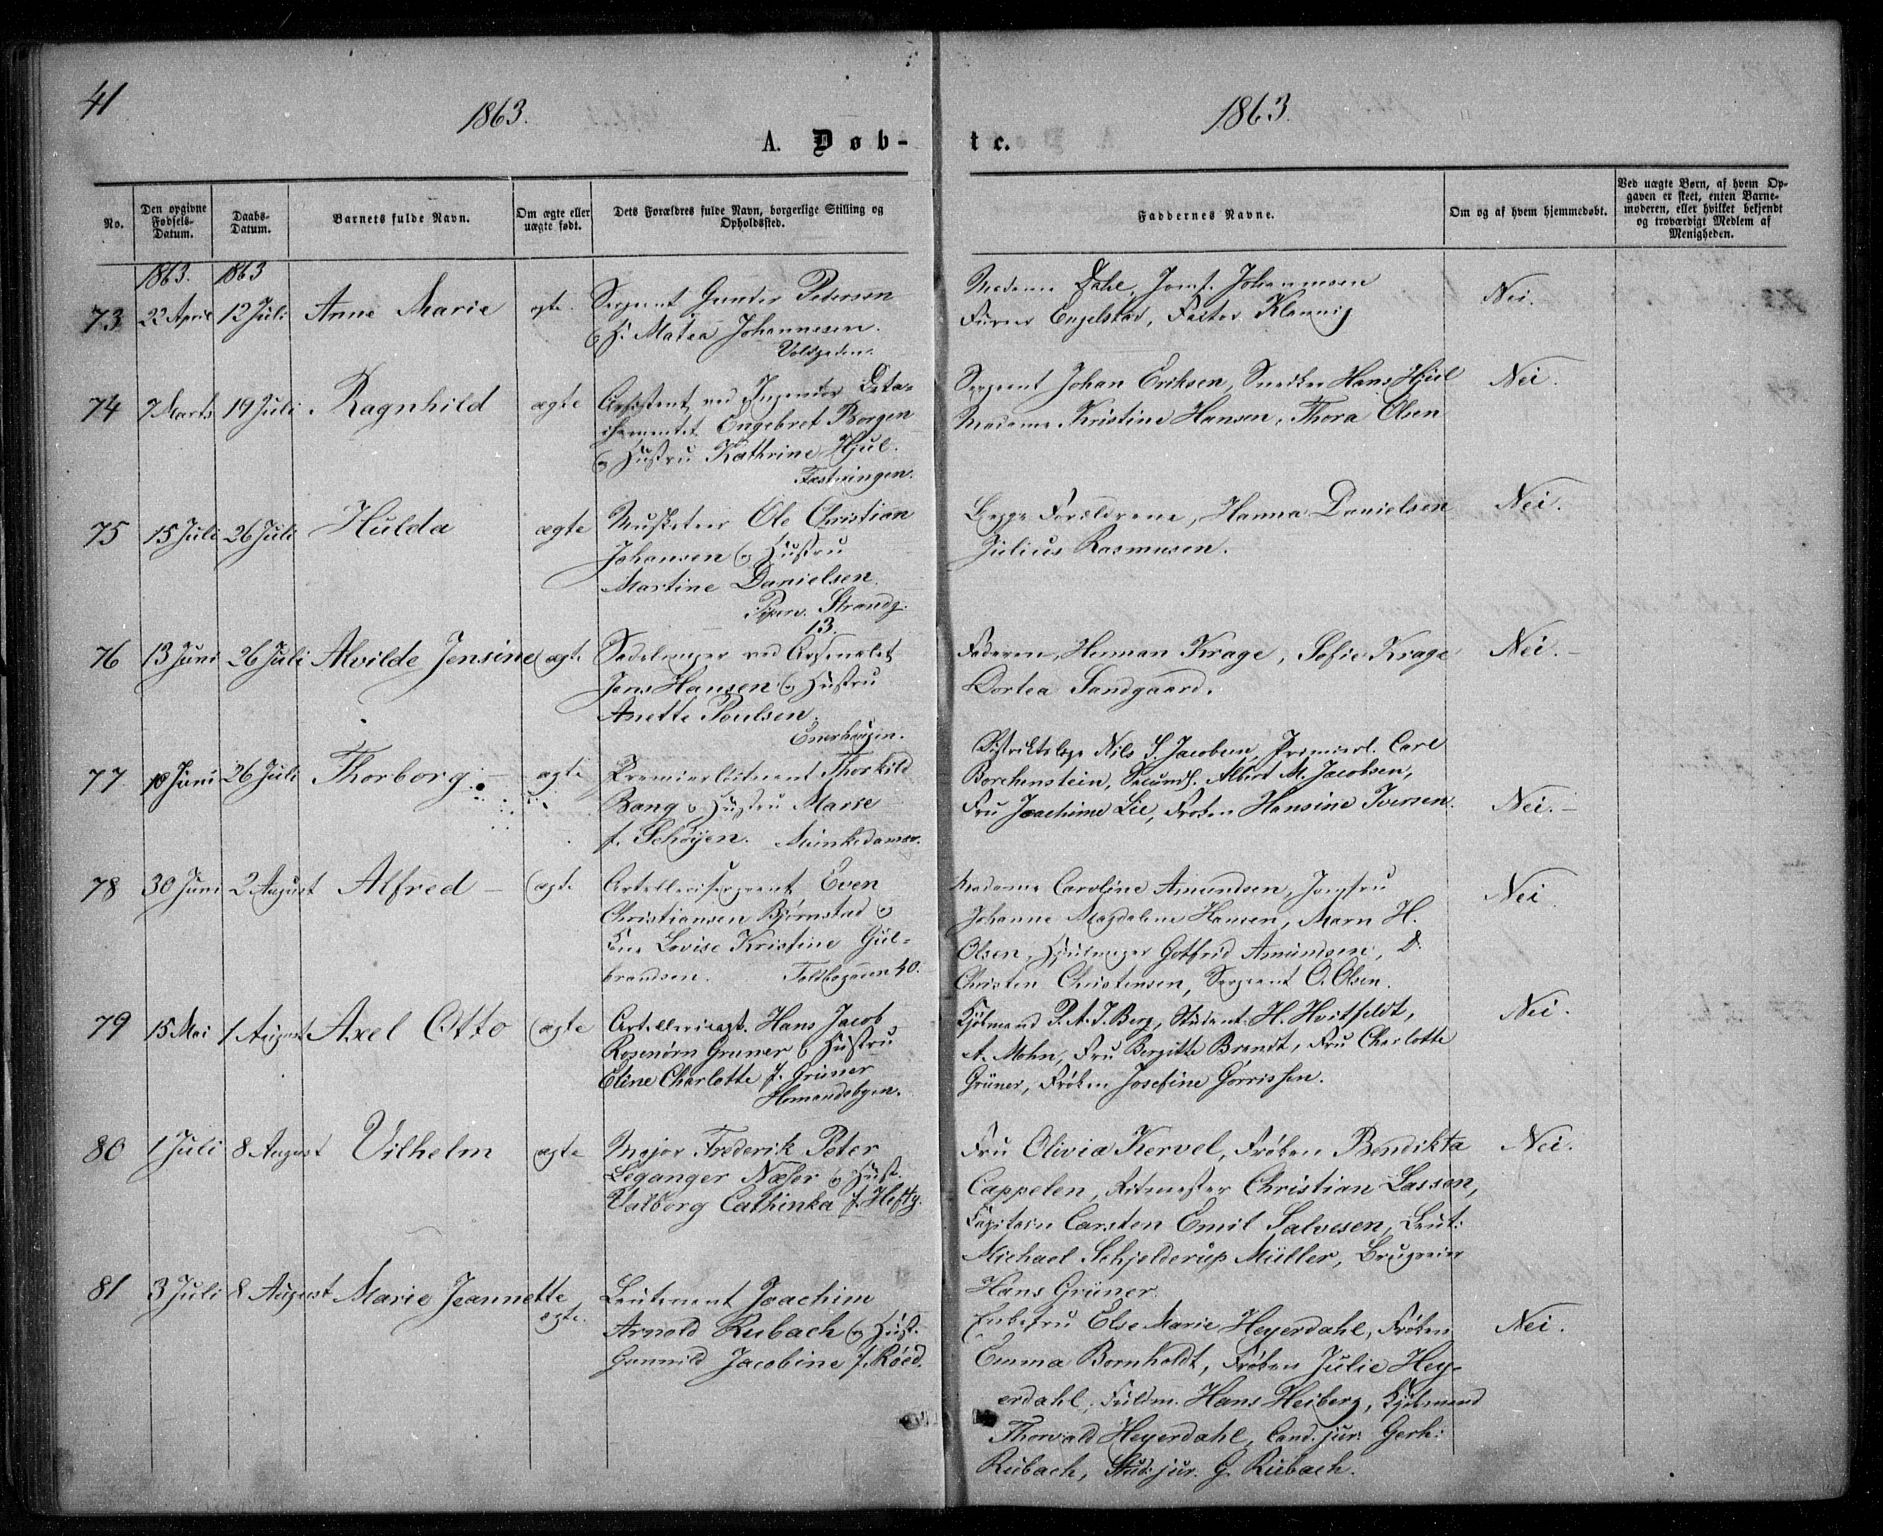 41
1863.
1863.
A. Døb-
te.
No.
Den opgivne Fødsels-Datum.
Daabs-Datum.
Barnets fulde Navn.
Om ægte eller uægte født.
Dets Forældres fulde Navn, borgerlige Stilling og Opholdssted.
Faddernes Navne.
Om og af hvem hjemmedøbt.
Ved uægte Børn, af hvem Op-
gaven er skeet, enten Barne-
moderen, eller hvilket bekjendt
og troværdigt Medlem af
Menigheden.
1863. 1863
73 22 April 12 Juli Anne Marie ægte.
Sergeant Gunder Petersen
og H. Matea Johannessen.
Voldgaden.
Madame Dahl, Jomf. Johannessen
Furer Engelstad, Factor Klannig
Nei.
74 7 Marts 19 Juli Ragnhild ægte
Assistent ved Ingeniør Deta-
chementet Engebret Borgen
og Hustru Kathrine Hjul.
Fæstningen.
Sergeant Johan Eriksen, Snedker Hans Hjul
Madame Kristine Hansen, Thora Olsen
Nei.
75 15 Juli 26 Juli Hulda ægte
Musketeer Ole Christian
Johansen og Hustru
Martine Danielsen.
Piperv. Strandg.
13.
Begge Forældrene, Hanna Danielsen
Julius Rasmussen.
Nei.
76 13 Juni 26 Juli Alvilde Jensine ægte
Sadelmager ved Arsenalet
Jens Hansen og Hustru
Anette Poulsen.
Enerhaugen.
Faderen, Herman Krage, Sofie Krage
Dortea Sandgaard.
Nei.
77 18 Juni 26 Juli Thorborg. ægte
Premierlieutnant Thorkild
Bang og Hustru Marie
f. Schøyen. Munkedamsv.
Distriktslæge Nils S. Jacobsen, Premierl. Carl
Borchenstein, Secundl. Albert M. Jacobsen,
Fru Joachime Lie, Frøken Hansine Iversen.
Nei.
78 30 Juni 2 August Alfred ægte
Artillerisergeant Even
Christiansen Bjørnstad og
Lovise Kristine Gul-
brandsen. 40.
Madame Caroline Amundsen, Jomfru
Johanne Magdalene Hansen, Maren H.
Olsen, Hjulmager Gotfrid Amundsen, D.
Christen Christensen, Sergeant O. Olsen.
Nei
79 15 Mai 1 August Axel Otto ægte
Hans Jacob
Rosenørn Gruner og Hustru
Eline Charlotte f. Grüner
Homansbyen.
Kjøbmand P. A. J. Berg, Student H. Hvitfeldt,
A. Mohn, Fru Bergitte Brandt, Fru Charlotte
Grüner, Frøken Josefine Gørrissen.
Nei.
80 1 Juli 8 August Vilhelm ægte
Major Frederik Peter
Leganger Næser og Hust.
Valborg Cathinka f. Hefty.
Fru Olivia Kervel, Frøken Bendikta
Cappelen, Ritmester Christian Lasson,
Capitain Carsten Emil Salvesen, Leut:
Michael Schjelderup Müller, Brugseier
Hans Grüner.
Nei.
81 3 Juli 8 August Marie Jeannette ægte.
Leutenant Joachim
Arnold Rubach og Hust.
Gunnild Jacobine f. Røed.
Enkefru Else Marie Heyerdahl, Frøken
Emma Bornholdt, Frøken Julie Hey-
erdahl, Fuldm. Hans Heiberg, Kjøbmand
Thorvald Heyerdahl, Cand. jur. Gerh:
Rubach, Stud: jur. G. Rubach.
Nei.